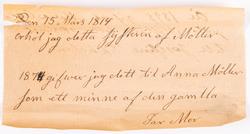 Den 15 Mars 1814
erhöl jag detta af
Möller
1874 gifver jag dett til Anna Möller
som ett minne af den gamla
Far Mor